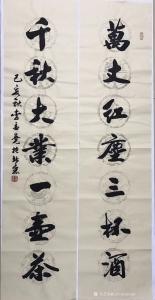 萬丈紅塵三杯酒
千秋大業一壺茶
己亥秋李